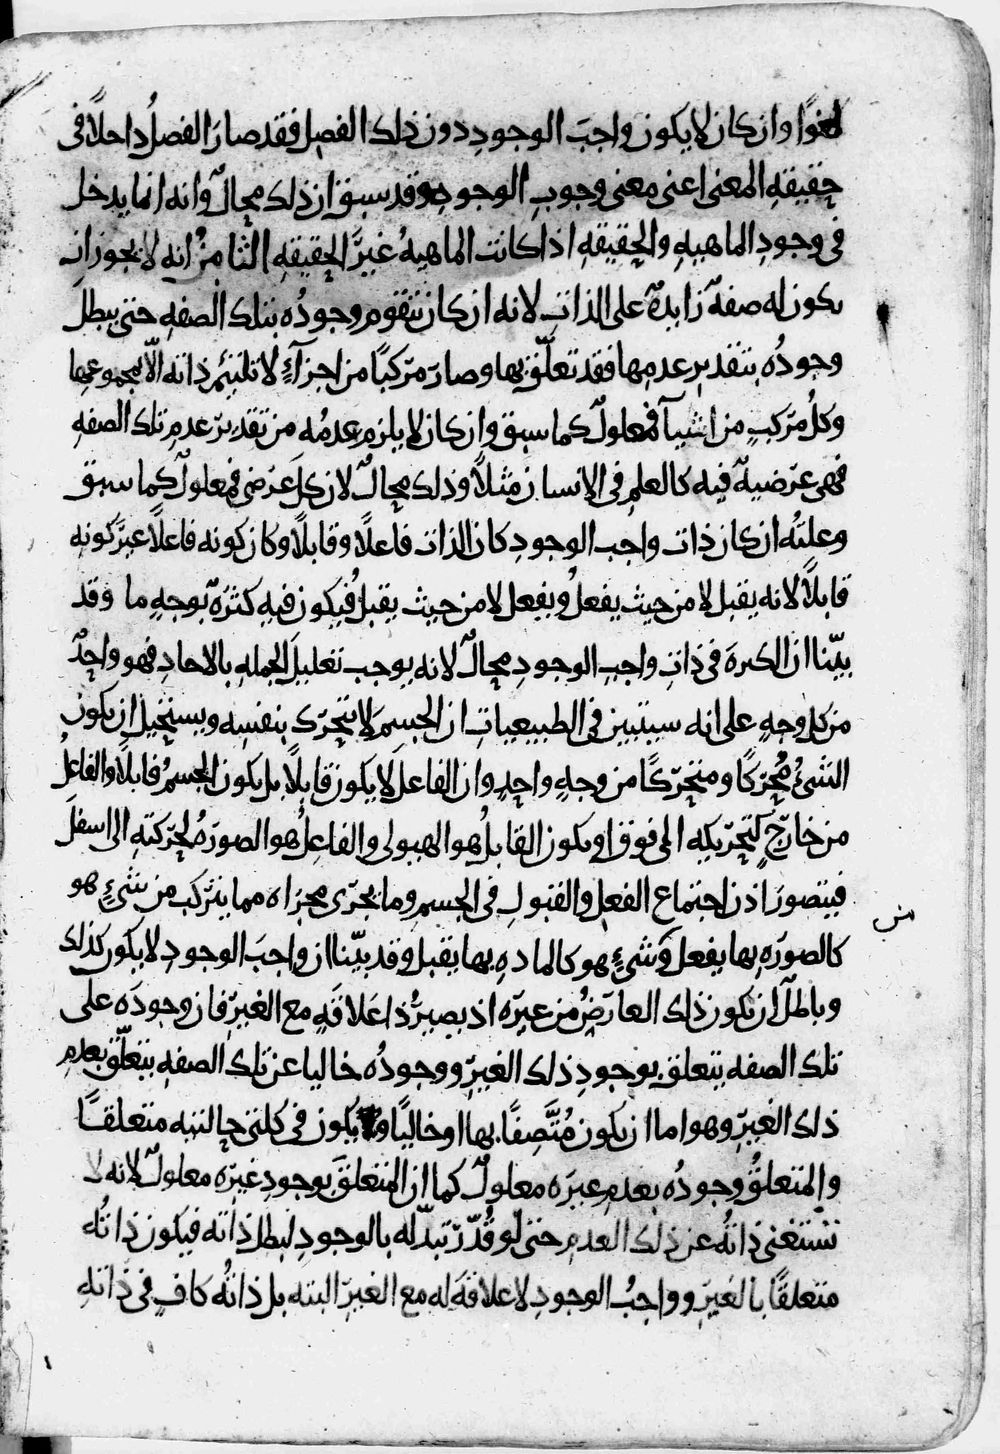 لغوًا وان كان لا يكون واجبَ الوجودِ دون ذلك الفصل فقد صارَ الفصلُ داخلاً فى
حقيقهِ المعنى اعنى معنى وجوبِ الوجودِ وقد سبق ان ذلك محالٌ وانه انما يدخل
فى وجودِ الماهيهِ والحقيقهِ اذا كانت الماهيهُ غيرَ الحقيقهِ الثامنُ انه لا يجوز ان
يكون له صفهٌ زايدهٌ على الذاتِ لانه ان كان تتقوم وجودُه بتلك الصفهِ حتى يبطل
وجودُه بتقديرِ عدمِها فقد تعلّق بها وصارَ مركبًا من اجزآءٍ لا تلتئم ذاته الّا بمجموعها
وكلُ مركبٍ من اشيآ فمعلولٌ كما سبق وان كان لا يلزم عدمُه من تقديرِ عدمِ تلك الصفهِ
فهى عرضيهٌ فيه كالعلمِ فى الإنسان مثلاً وذلك محالٌ لان كل عرضى فمعلولٌ كما سبق
وعلتُه ان كان ذات واجب الوجودِ كان الذات فاعلاً وقابلاً وكان كونه فاعلاً غيرَ كونه
قابلاً لانه يقبل لا من حيث يفعلُ ويفعل لا من حيث يقبلُ فيكون فيه كثرةٌ بوجهٍ ما وقد
بيّنا ان الكثرهَ فى ذاتِ واجبِ الوجودِ محالٌ لانه يوجب تعليلَ الجملهِ بالاحادِ فهو واحدٌ
من كل وجهٍ على انه سيتبين فى الطبيعياتِ ان الجسمَ لا يتحرك بنفسِه ويستحيل ان يكون
الشئُ مُحرّكًا ومتحرّكًا من وجهٍ واحدٍ وان الفاعلَ لا يكون قابلاً بل يكون الجسمُ قابلاً والفاعلُ
من خارجٍ كتحريكِه الى فوق او يكون القابلُ هو الهيولى والفاعلُ هو الصورةُ لحركتهِ الى اسفلَ
فيتصورَ اذن اجتماع الفعلِ والقبولِ فى الجسمِ وما يجرى مجراه مما يتركب من شئٍ هو
كالصورةِ بها يفعل وشئٍ هو كالمادهِ بها يقبل وقد بيّنا ان واجبَ الوجودِ لا يكون كذلك
وباطلٌ ان يكون ذلك العارضُ من غيرِه اذ يصيرُ ذا عَلاقَهٍ مع الغيرِ فان وجودَه على
تلك الصفه يتعلق بوجودِ ذلك الغيرِ ووجودُه خاليا عن تلك الصفهِ يتعلّق بعدمِ
ذلك الغيرِ وهو اما ان يكون مُتَّصِفًا بها او خاليًا ويكون فى كلتى حالتيه متعلقًا
والمتعلقُ وجودُه بعدمِ غيرِه معلولٌ كما ان المتعلقَ بوجودِ غيره معلولٌ لانه لا
تستغنى ذاتُه عن ذلك العدمِ حتى لو قُدّر تبدّله بالوجودِ لبطل ذاته فيكون ذاتُه
متعلقًا بالغيرِ وواجبُ الوجودِ لا علاقةَ له مع الغيرِ البته بل ذاتُه كافٍ فى ذاتهِ